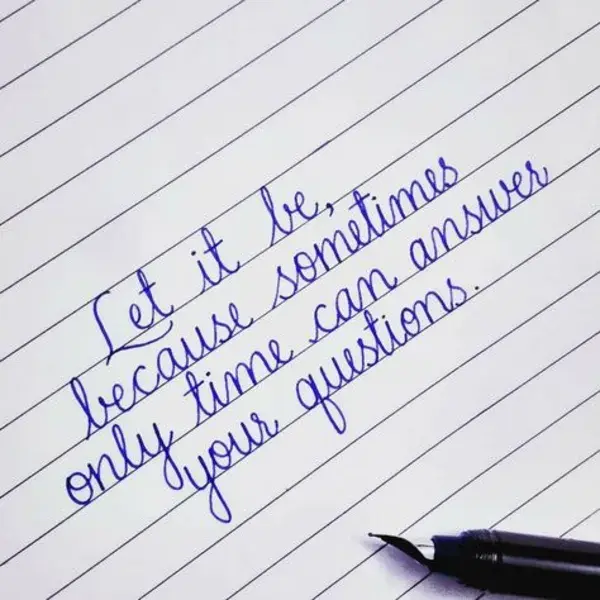 Let it be,
because sometimes
only time can answer
your questions.